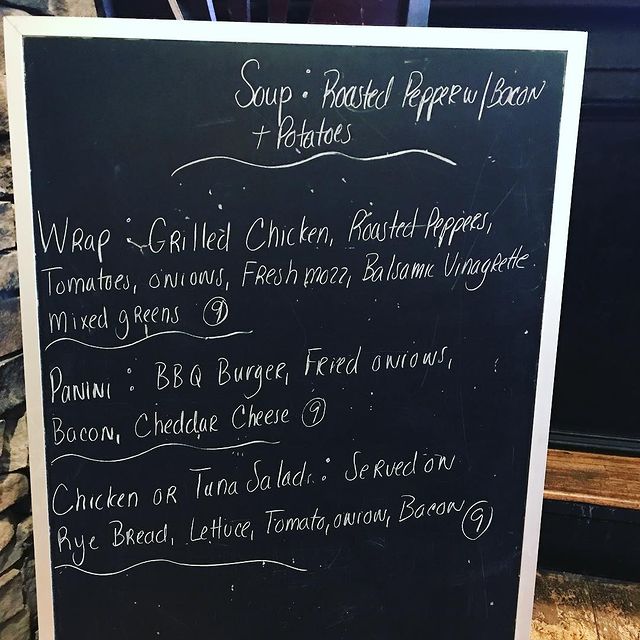 Soup: Roasted Pepper w/Bacon
+ Potatoes
Wrap: Grilled Chicken, Roasted Peppers,
Tomatoes, onions, Fresh mozz, Balsamic Vinagrette
mixed greens 9
Panini: BBQ Burger, Fried onions,
Bacon, Cheddar Cheese 9
Chicken or Tuna Salad: Served on
Rye Bread, Lettuce, Tomato, onion, Bacon 9